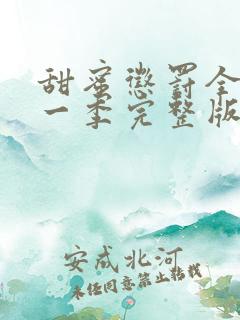 甜蜜惩罚全
一季完整版
安成北河
未经同意禁止转载